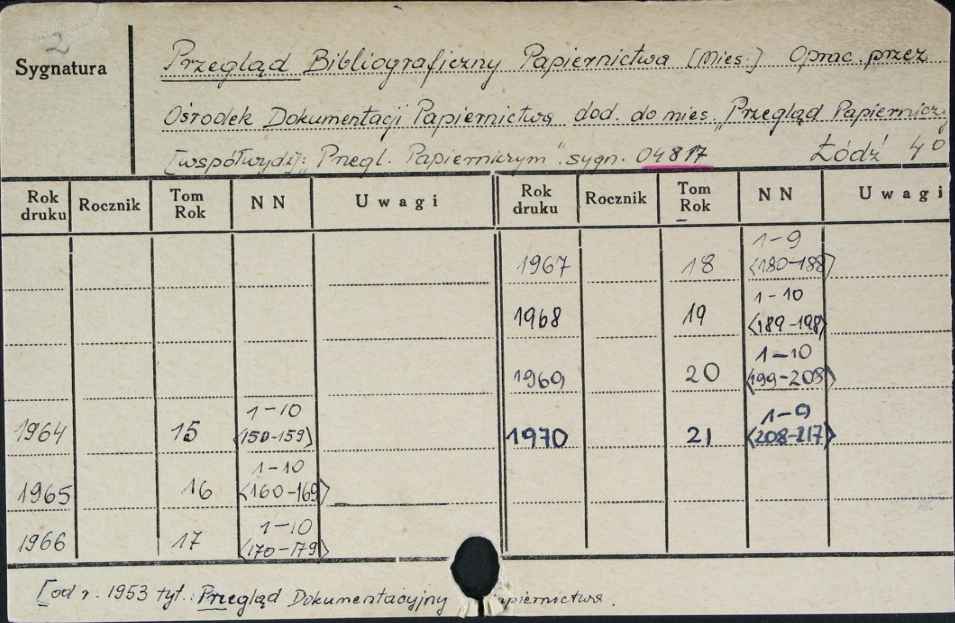 2
Sygnatura
Przegląd Bibliograficzny Papiernictwa [Mies.] Oprac. przez
Ośrodek Dokumentacji Papiernictwa dod. do mies. "Przegląd Papierniczy
[współwyd.]: Przegl. Papierniczym". sygn. 04817 Łódź 4⁰
Rok druku Rocznik Tom Rok NN Uwagi Rok druku Rocznik Tom Rok NN Uwagi
1967 18 1-9 <180-188>
1968 19 1-10 <189-198>
1969 20 1-10 <199-208>
1964 15 1-10 <150-159> 1970 21 1-9 <208-217>
1965 16 1-10 <160-169>
1966 17 1-10 <170-179>
[od r. 1953 tyt.: Przegląd Dokumentacyjny apiernictwa.